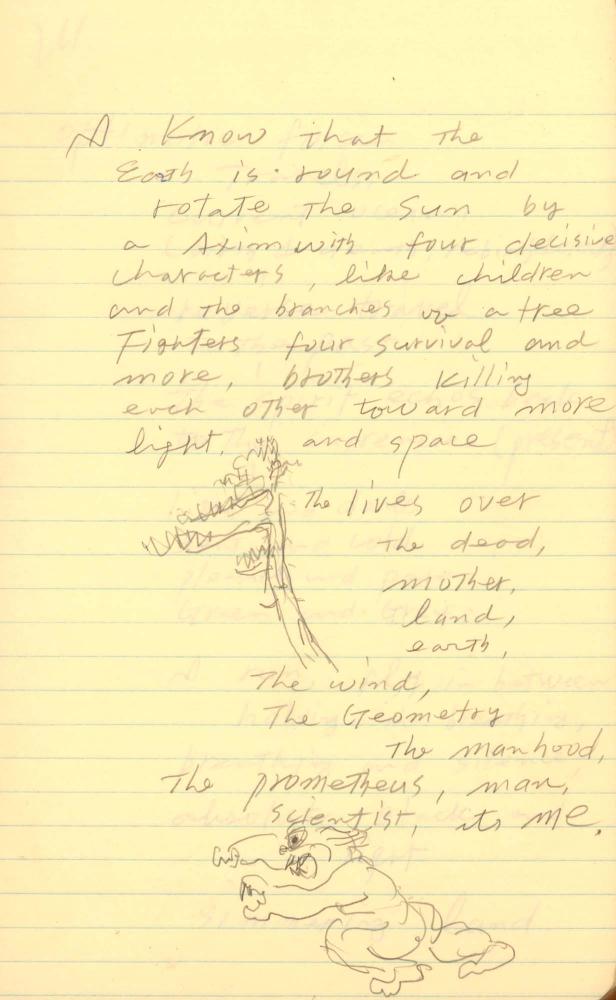 I Know that the
Earth is round and
rotate the Sun by
a Axim with four decisive
characters, like children
and the branches a tree
Fighters four survival and
more, brothers killing
each other toward more
light, and space
The lives over
the dead,
mother,
land,
earth,
The wind,
The Geometry
the manhood,
The prometheus, man,
scientist, its me.